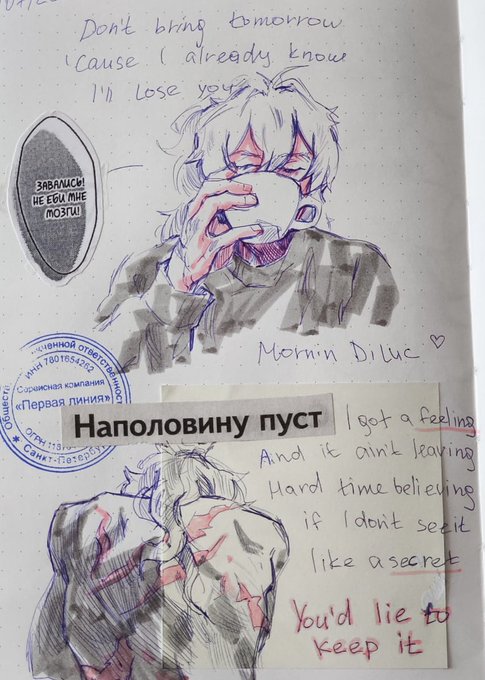 Don't bring tomorrow
'Cause I already know
I'll lose you
ЗАВАЛИСЬ!
НЕ ЕБИ МНЕ
МОЗГИ!
Mornin Diluc ♡
ИНН 7801654262
Сервисная компания
«Первая линия»
Санкт-Петербу
Наполовину пуст
I got a feeling
And it ain't leaving
Hard time believing
if I don't see it
like a secret
You'd lie to
keep it